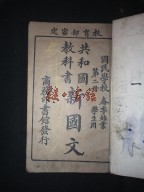 教育部審定
國民學校
春季始業
第二册
學生用
共和國
教科書
新國文
商務印書館發行